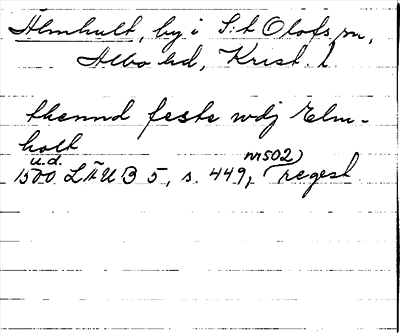 Älmhult, by i S:t Olofs sn,
Albo hd, Krist. l.
thennd feste wdj Elm-
holt
u.d.
1500 LÄUB 5, s. 449, (n 502) regest